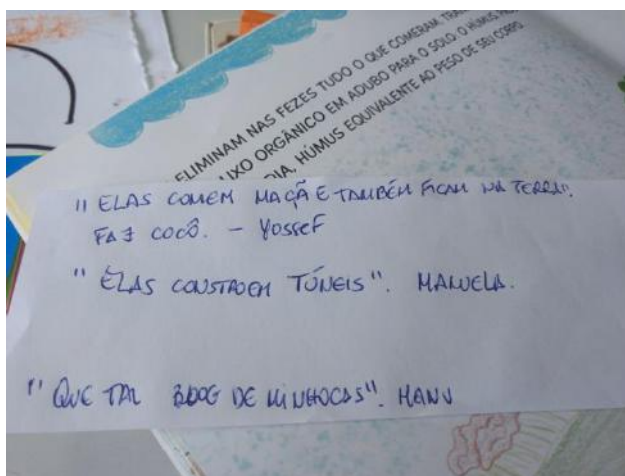 ELIMINAM NAS FEZES TUDO O QUE COMERAM, TRAN
LIXO ORGÂNICO EM ADUBO PARA O SOLO: O HÚMUS
DIA, HÚMUS EQUIVALENTE AO PESO DE SEU CORPO
"ELAS COMEM MAÇÃ E TAMBÉM FICAM NA TERRA".
FAZ COCÔ. – YOSSEF
"ELAS CONSTROEM TÚNEIS". MANUELA.
"QUE TAL BLOG DE MINHOCAS". MANU